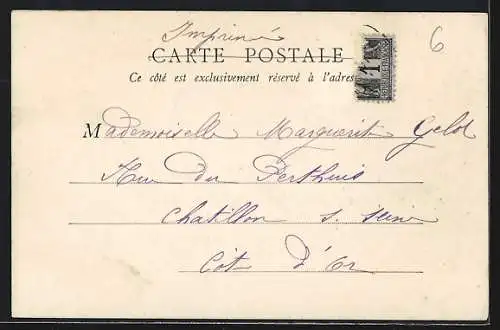 Imprimé
6
CARTE POSTALE
Ce côté est exclusivement réservé à l'adres
Mademoiselle Marguerit Gelot
Rue du Perthuis
Chatillon s. Seine
Côt d'Or